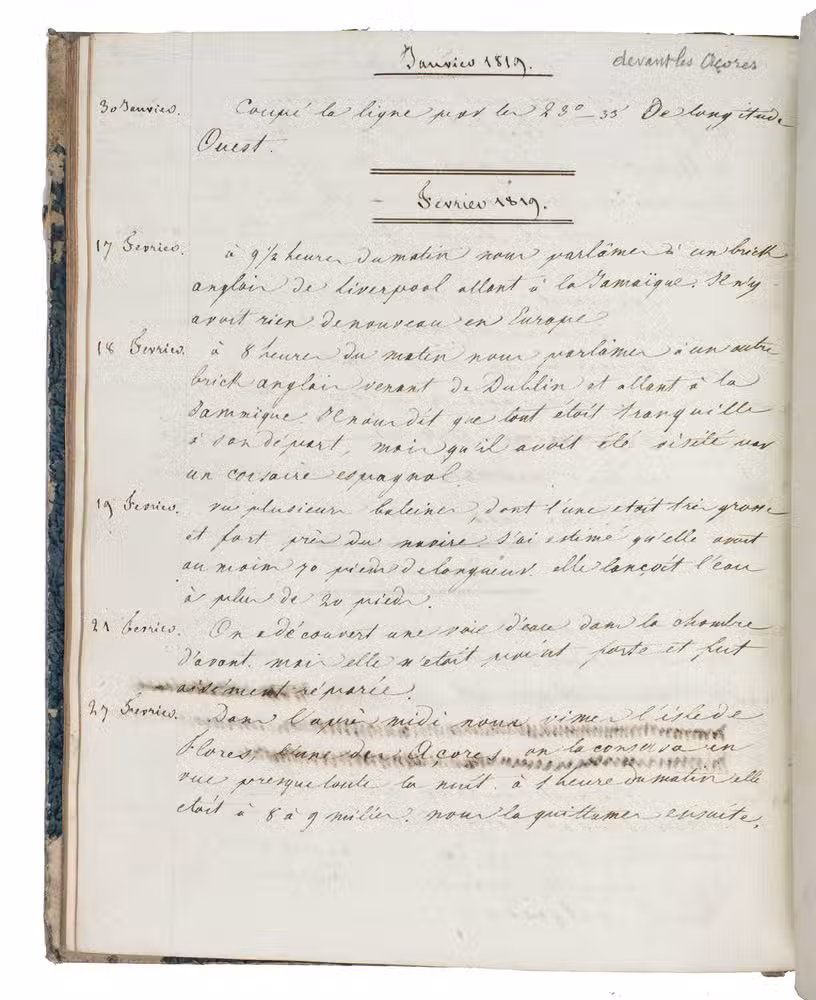 Janvier 1819.
devant les Açores
30 Janvier. Coupé la ligne par les 23° - 35' De longitude
Ouest.
Fevrier 1819.
17 Fevrier. à 9 1/2 heures du matin nous parlâmes à un brick
anglais de Liverpool allant à la Jamaïque. Il n'y
avoit rien de nouveau en Europe
18 Fevrier. à 8 heures du matin nous parlâmes à un autre
brick anglais venant de Dublin et allant à la
Jammique. Il nous dit que tout étoit tranquille
à son départ, mais qu'il avoit été visité par
un corsaire espagnol.
19 Fevrier. vu plusieurs baleines, dont l'une etoit très grosse
et fort près du navire. J'ai estimé qu'elle avoit
au moins 70 pieds de longueur. elle lançoit l'eau
à plus de 20 pieds.
21 Fevrier. On a découvert une voie d'eau dans la chambre
d'avant. mais elle n'etoit point forte et fut
aisément réparée.
27 Fevrier. Dans l'après midi nous vimes l'isle de
Flores, l'une des Açores, on la conserva en
vue presque toute la nuit. à 1 heure du matin elle
etoit à 8 à 9 milles. nous la quittames ensuite.